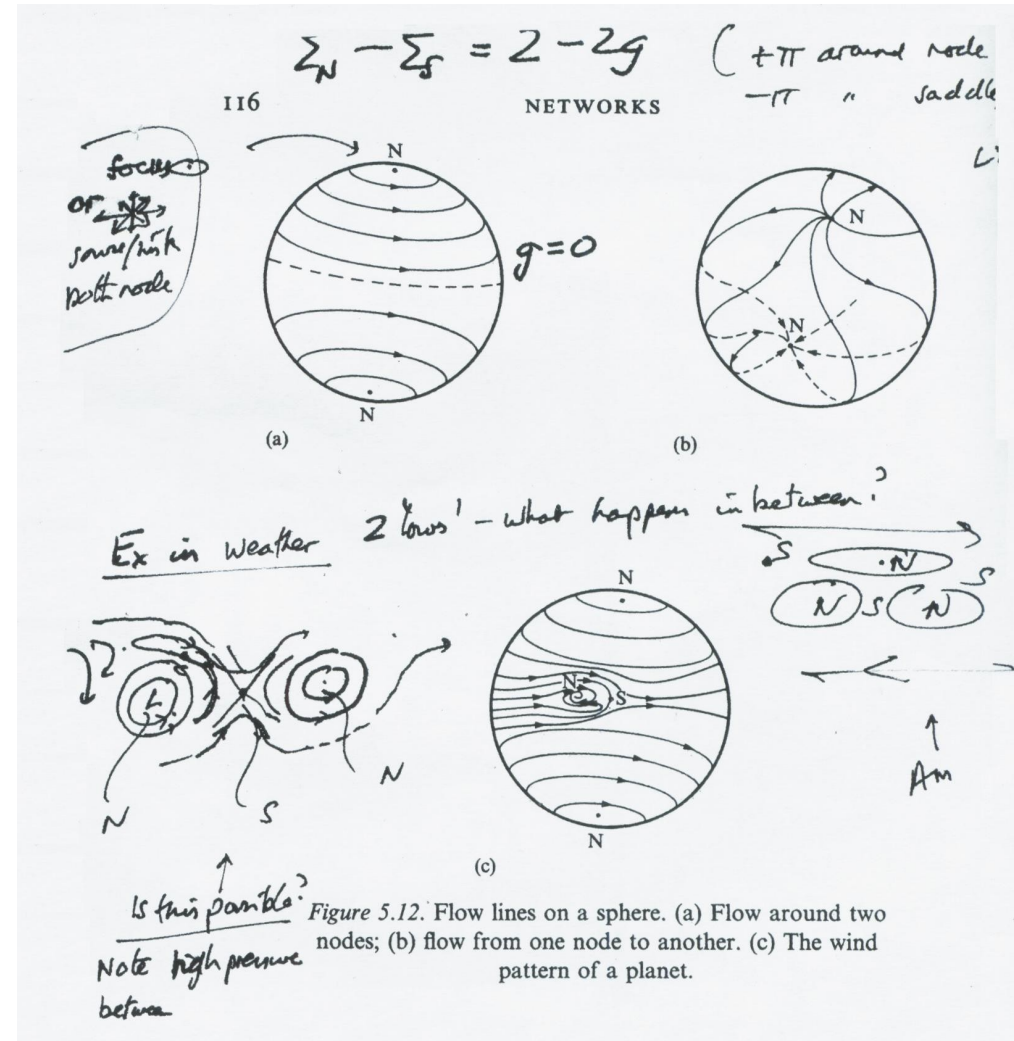 Σ_N − Σ_S = 2 − 2g
( +π around node
−π " saddle
116
NETWORKS
focus
or
source/sink
both node
N
N
g=0
(a)
N
N
(b)
Ex in Weather
2 'lows' - what happens in between?
S
N
S
N
S
N
L
N
S
N
N
N
S
N
(c)
Am
Is this possible?
Note high pressure
between
Figure 5.12. Flow lines on a sphere. (a) Flow around two
nodes; (b) flow from one node to another. (c) The wind
pattern of a planet.